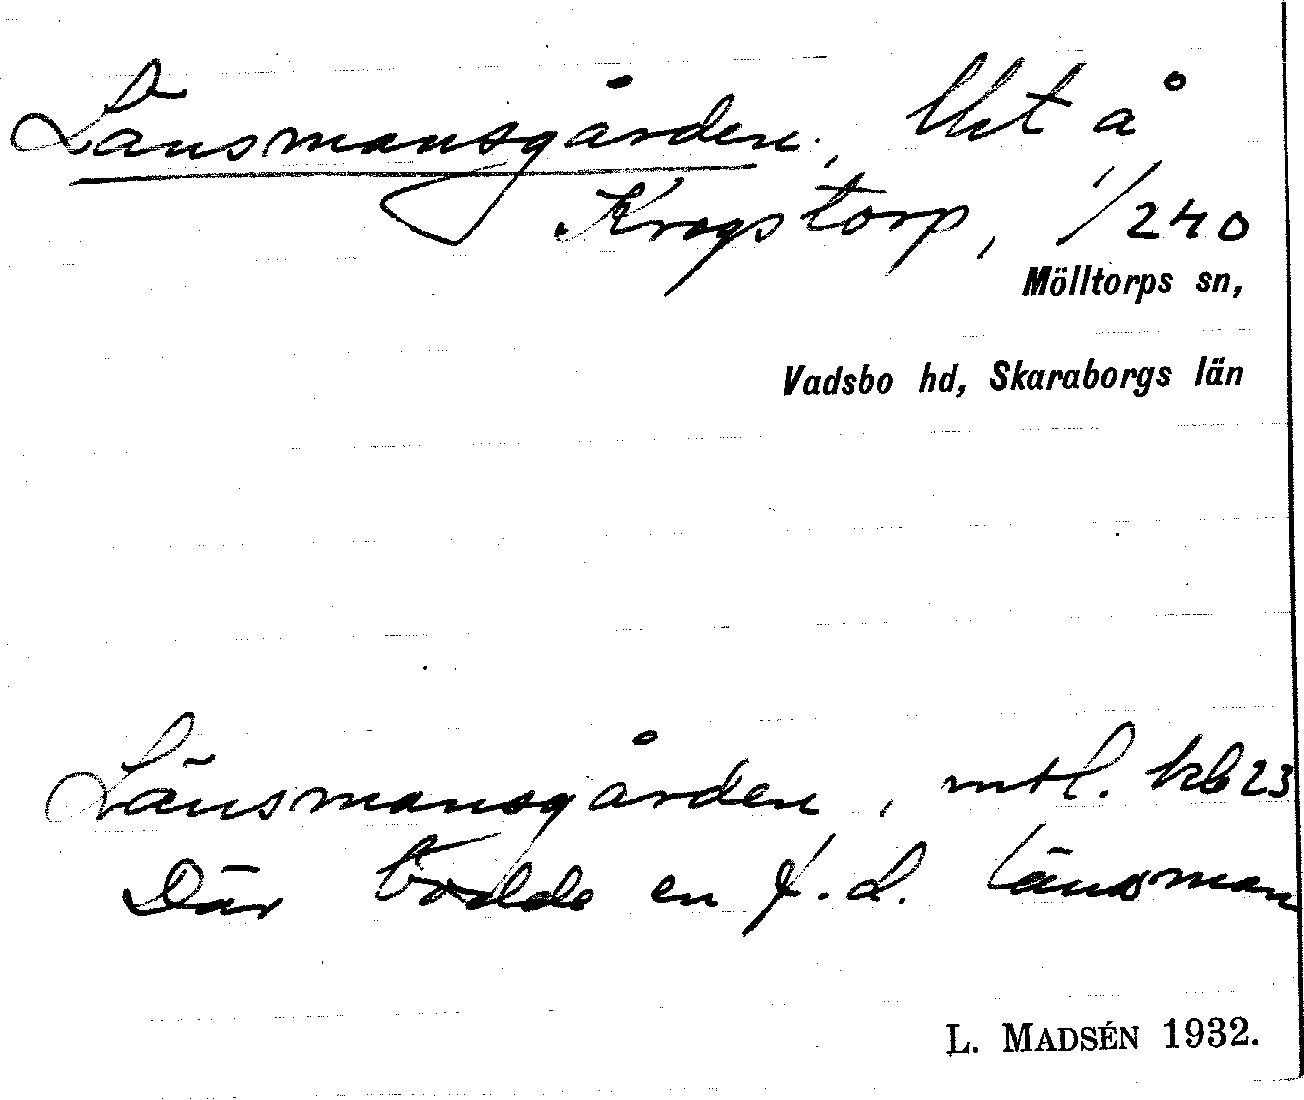 Länsmansgården, lht å
Krogstorp, 1/240
Mölltorps sn,
Vadsbo hd, Skaraborgs län
Länsmansgården, mtl. kb 23
Där bodde en f.d. länsman
L. MADSÉN 1932.